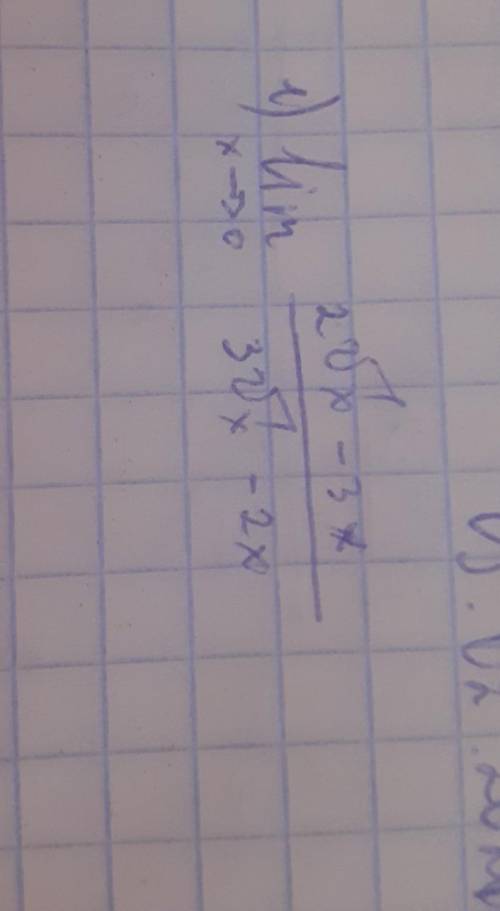 1) lim x→0 (2√x - 3x) / (3√x - 2x)